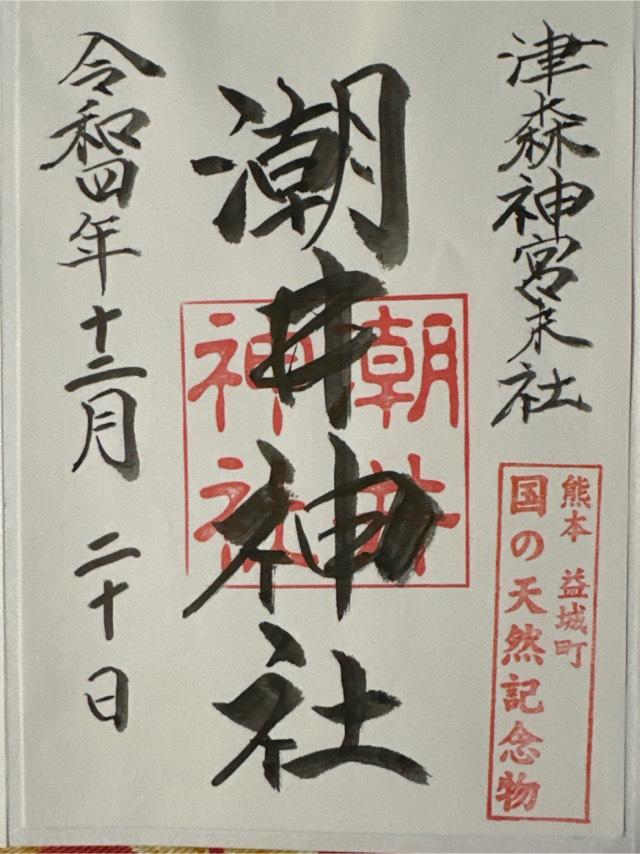 津森神宮末社
熊本 益城町
国の天然記念物
潮井神社
潮井
神社
令和四年十二月 二十日